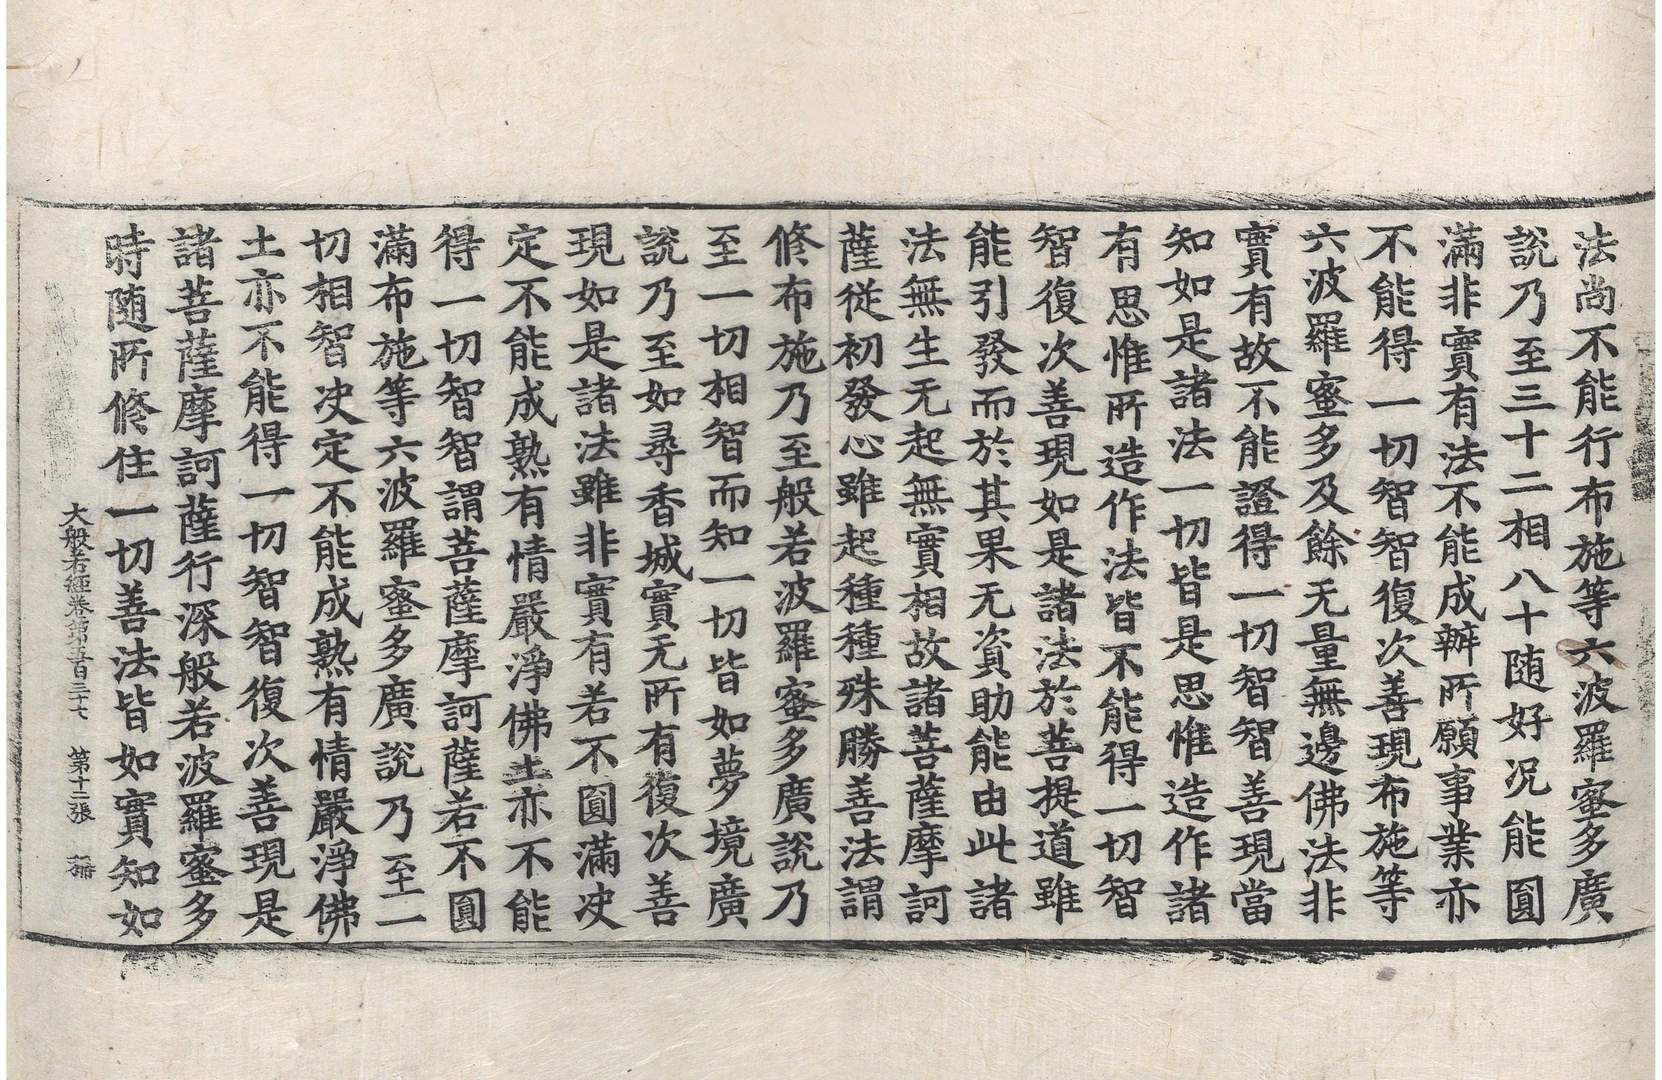 法尚不能行布施等六波羅蜜多廣
說乃至三十二相八十随好況能圓
滿非實有法不能成辦所願事業亦
不能得一切智智復次善現布施等
六波羅蜜多及餘无量無邊佛法非
實有故不能證得一切智智善現當
知如是諸法一切皆是思惟造作諸
有思惟所造作法皆不能得一切智
智復次善現如是諸法於菩提道雖
能引發而於其果无資助能由此諸
法無生无起無實相故諸菩薩摩訶
薩從初發心雖起種種殊勝善法謂
修布施乃至般若波羅蜜多廣說乃
至一切相智而知一切皆如夢境廣
說乃至如尋香城實无所有復次善
現如是諸法雖非實有若不圓滿决
定不能成熟有情嚴淨佛土亦不能
得一切智智謂菩薩摩訶薩若不圓
滿布施等六波羅蜜多廣說乃至一
切相智决定不能成熟有情嚴淨佛
土亦不能得一切智智復次善現是
諸菩薩摩訶薩行深般若波羅蜜多
時随所修住一切善法皆如實知如
大般若經卷第五百三十七 第十二張